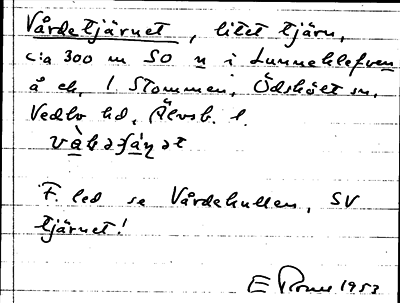 Vårdetjärnet, litet tjärn,
c:a 300 m SO n i Lunneklefven
å ek. 1 Stommen, Ödskölt sn,
Vedbo hd, Älvsb. l.
F. led se Vårdekullen, SV
tjärnet!
E 1953